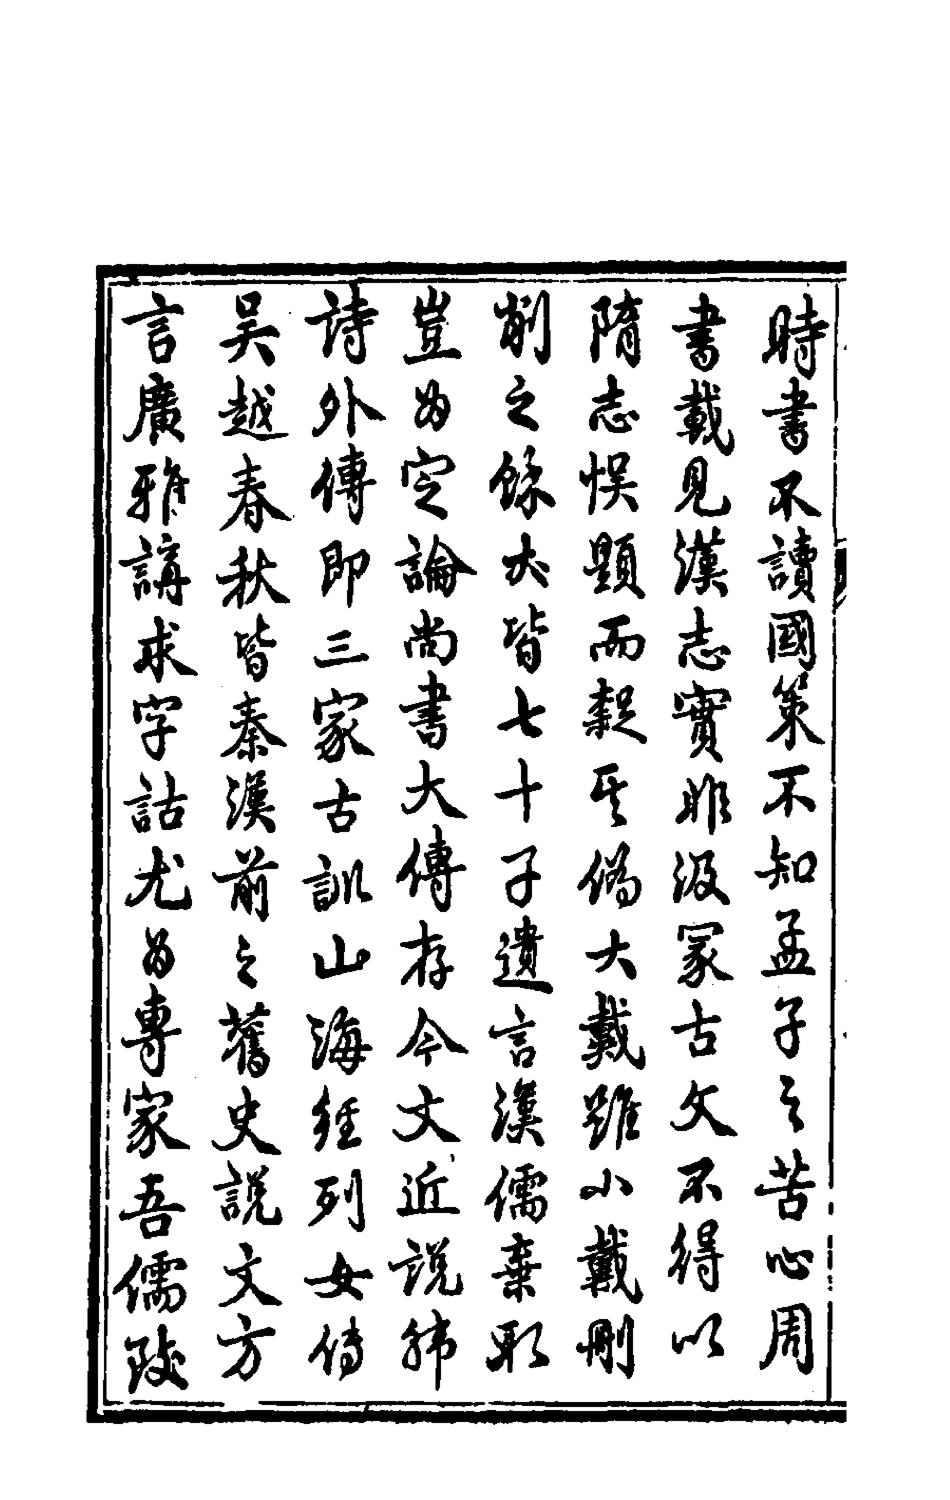 時書不讀國策不知孟子之苦心周
書載見漢志實非汲冢古文不得以
隋志悞題而疑其偽大戴雖小戴刪
削之餘亦皆七十子遺言漢儒棄取
豈為定論尚書大傳存今文近說韓
詩外傳即三家古訓山海經列女傳
吳越春秋皆秦漢前之舊史說文方
言廣雅講求字詁尤為專家吾儒